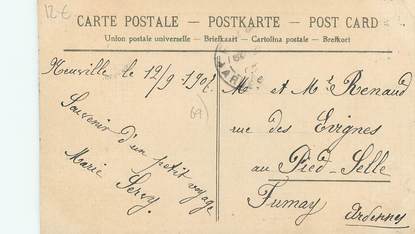 12 €
CARTE POSTALE – POSTKARTE – POST CARD
Union postale universelle – Briefkaart – Cartolina postale – Brefkort
Neuville le 12/9 - 190
Souvenir d'un petit voyage
Marie
M et Mme Renaud
rue des Evignes
au Pied-Selle
Fumay
Ardennes